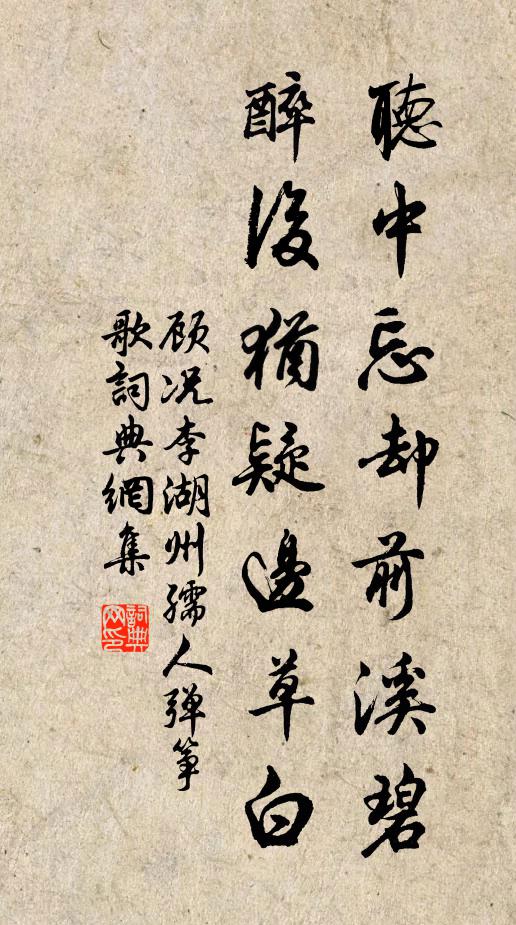 聽中忘却前溪碧
醉後猶疑邊草白
顾况李湖州孺人弹筝
歌詞典網集
詞典
网印